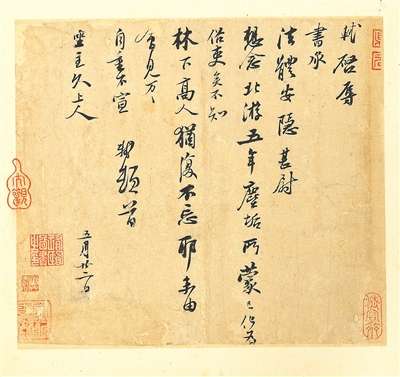 軾啓辱
書承
法體安隱甚尉
想念北游五年塵垢所蒙已化為
俗吏矣不知
林下高人猶復不忘耶未由
會見萬〻
自重不宣
軾頓首
五月廿二日
坐主久上人